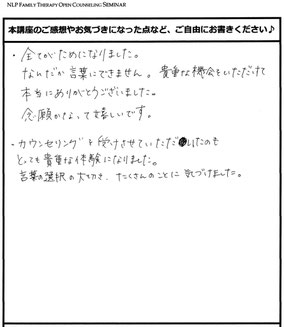 NLP FAMILY THERAPY OPEN COUNSELING SEMINAR
本講座のご感想やお気づきになった点など、ご自由にお書きください♪
・全てがためになりました。
なんだか言葉にできません。貴重な機会をいただけて
本当にありがとうございました。
念願かなって嬉しいです。
・カウンセリングを受けさせていただいたのも
とっても貴重な体験になりました。
言葉の選択の大切さ、たくさんのことに気づけました。